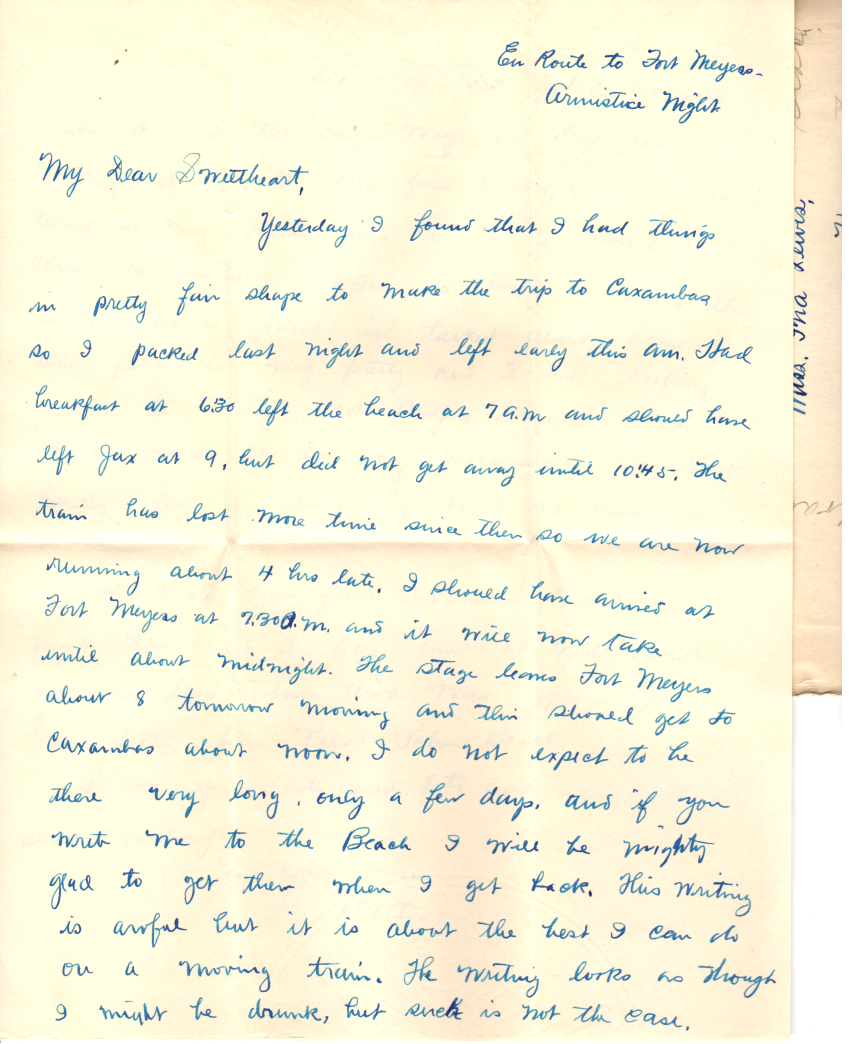 En Route to Fort Meyers-
Armistice Night
My Dear Sweetheart,
Yesterday I found that I had things
in pretty fair shape to make the trip to Caxambas
so I packed last night and left early this am. Had
breakfast at 6:30 left the beach at 7 a.m and should have
left Jax at 9, but did not get away until 10:45. The
train has lost more time since then so we are now
running about 4 hrs late. I should have arrived at
Fort Meyers at 7:30 P.m. and it will now take
until about midnight. The stage leaves Fort Meyers
about 8 tomorrow moving and this should get to
Caxambas about noon. I do not expect to be
there very long, only a few days. and if you
write me to the Beach I will be mighty
glad to get them when I get back. This writing
is awful but it is about the best I can do
on a moving train. The writing looks as though
I might be drunk, but such is not the case.
Miss. Ina Lewis,